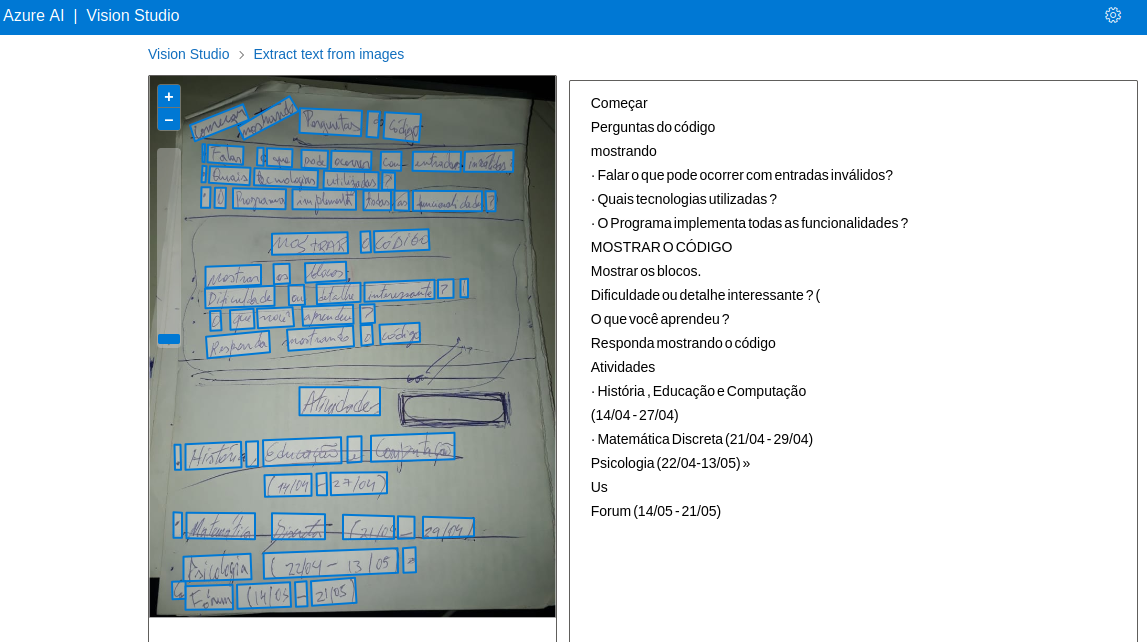 Azure AI | Vision Studio
Vision Studio > Extract text from images
+
−
Começar mostrando Perguntas do código
· Falar o que pode ocorrer com entradas inválidos?
· Quais tecnologias utilizadas ?
· O Programa implementa todas as funcionalidades ?
MOSTRAR O CÓDIGO
Mostrar os blocos.
Dificuldade ou detalhe interessante ?
O que você aprendeu ?
Responda mostrando o código
Atividades
· História, Educação e Computação
(14/04 - 27/04)
· Matemática Discreta (21/04 - 29/04)
Psicologia (22/04 - 13/05)
Fórum (14/05 - 21/05)
Começar
Perguntas do código
mostrando
· Falar o que pode ocorrer com entradas inválidos?
· Quais tecnologias utilizadas ?
· O Programa implementa todas as funcionalidades ?
MOSTRAR O CÓDIGO
Mostrar os blocos.
Dificuldade ou detalhe interessante ? (
O que você aprendeu ?
Responda mostrando o código
Atividades
· História , Educação e Computação
(14/04 - 27/04)
· Matemática Discreta (21/04 - 29/04)
Psicologia (22/04-13/05) »
Us
Forum (14/05 - 21/05)